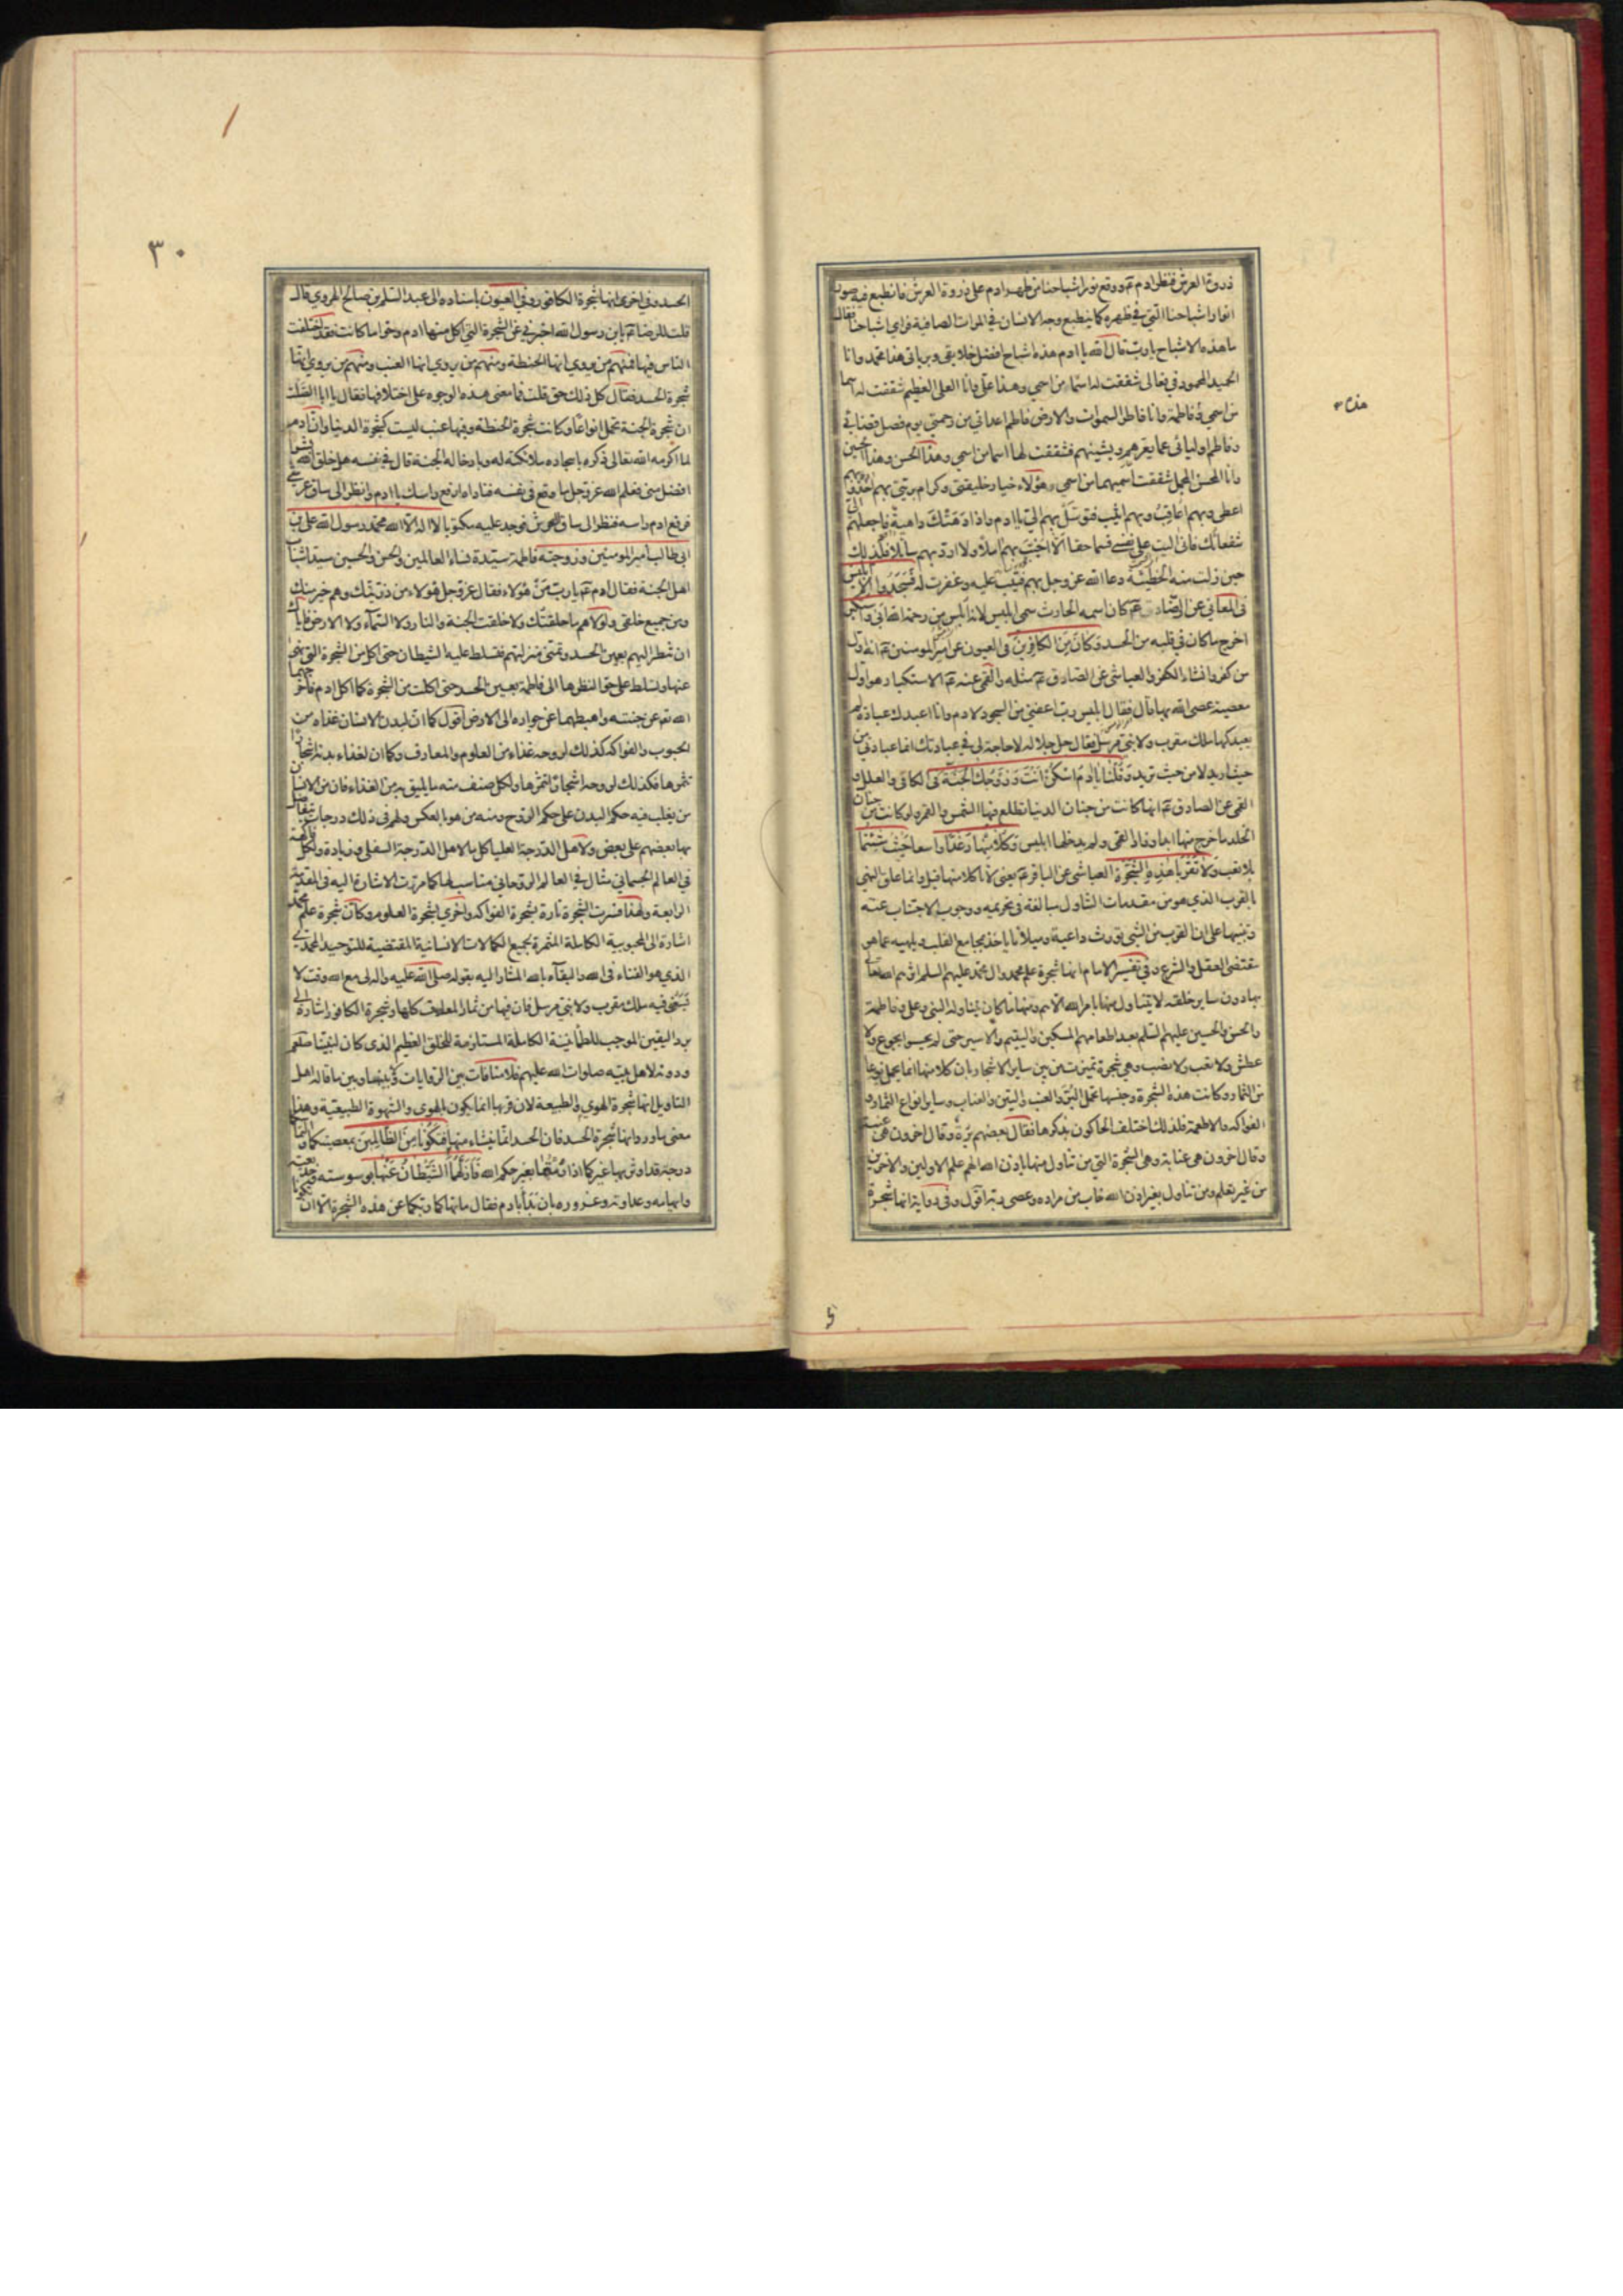 ذروة العرش فنظر ادم عم ووقع نور اشباحنا من ظهر ادم على ذروة العرش فانطبع فيه صور
انوار اشباحنا التي في ظهره كما ينطبع وجه الانسان في المرات الصافية فراى اشباحنا فقال
ما هذه الاشباح يا رب قال الله يا ادم هذه اشباح افضل خلايقي وبرياتي هذا محمد وانا
الحميد المحمود في فعالي شققت له اسما من اسمي وهذا علي وانا العلي العظيم شققت له اسما
من اسمي وفاطمة وانا فاطر السموات والارض فاطم اعدائي من رحمتي يوم فصل قضائي
وفاطم اوليائي عما يعرهم ويشينهم فشققت لها اسما من اسمي وهذا الحسن وهذا الحسين
وانا المحسن المجمل شققت اسميهما من اسمي وهؤلاء خيار خليقتي وكرام بريتي بهم اخذ وبهم
اعطي وبهم اعاقب وبهم اثيب فتوسل بهم الي يا ادم واذا دهتك داهية فاجعلهم الي
شفعائك فاني اليت على نفسي قسما حقا الا اخيب بهم املا ولا ارد بهم سائلا فلذلك
حين زلت منه الخطيئة دعا الله عز وجل بهم فتيب عليه وغفرت له فسجدوا الا ابليس
في المعاني عن الرضا عم كان اسمه الحارث سمي ابليس لانه ابلس من رحمة الله ابى واستكبر
اخرج ما كان في قلبه من الحسد وكان من الكافرين في العيون عن امير المومنين عم انه اول
من كفر وانشاء الكفر والعياشي عن الصادق عم مثله والقمي عنه عم الاستكبار هو اول
معصية عصي الله بها قال فقال ابليس رب اعفني من السجود لادم وانا اعبدك عبادة لم
يعبدكها ملك مقرب ولا نبي مرسل فقال جل جلاله لا حاجة لي في عبادتك انما عبادتي من
حيث اريد لا من حيث تريد وقلنا يا ادم اسكن انت وزوجك الجنة في الكافي والعلل و
القمي عن الصادق عم انها كانت من جنان الدنيا تطلع فيها الشمس والقمر ولو كانت من جنان
الخلد ما خرج منها ابدا وزاد القمي ولم يدخلها ابليس وكلا منها رغدا واسعا حيث شئتما
بلا تعب ولا تقربا هذه الشجرة العياشي عن الباقر عم يعني لا تاكلا منها قيل وانما علق النهي
بالقرب الذي هو من مقدمات التناول مبالغة في تحريمه ووجوب الاجتناب عنه
وتنبيها على ان القرب من الشيء يورث داعية وميلا ما ياخذ بمجامع القلب ويلهيه عما هو
مقتضى العقل والشرع وفي تفسير الامام انها شجرة علم محمد وال محمد عليهم السلم اثرهم الله تعالى
بها دون ساير خلقه لا يتناول منها بامر الله الا هم ومنها ما كان يتناوله النبي وعلي وفاطمة
والحسن والحسين عليهم السلم بعد اطعامهم المسكين واليتيم والاسير حتى لم يحسوا بجوع ولا
عطش ولا تعب ولا نصب وهي شجرة تميزت من بين ساير الاشجار بان كلا منها انما يحمل نوعا
من الثمار وكانت هذه الشجرة وجنسها تحمل البر والعنب والتين والعناب وساير انواع الثمار و
الفواكه والاطعمة فلذلك اختلف الحاكون بذكرها فقال بعضهم برة وقال اخرون هي عنبة
وقال اخرون هي عنابة وهي الشجرة التي من تناول منها باذن الله الهم علم الاولين والاخرين
من غير تعلم ومن تناول بغير اذن الله خاب من مراده وعصى ربه اقول وفي رواية انها شجرة
٣٠
الحسد وفي اخرى انها شجرة الكافور وفي العيون باسناده الى عبد السلم بن صالح الهروي قال
قلت للرضا عم يا بن رسول الله اخبرني عن الشجرة التي اكل منها ادم وحوا ما كانت فقد اختلفت
الناس فيها فمنهم من يروي انها الحنطة ومنهم من يروي انها العنب ومنهم من يروي انها
شجرة الحسد فقال كل ذلك حق قلت فما معنى هذه الوجوه على اختلافها فقال يا ابا الصلت
ان شجرة الجنة تحمل انواعا وكانت شجرة الحنطة وفيها عنب ليست كشجرة الدنيا وان ادم
لما اكرمه الله تعالى ذكره باسجاده ملائكته له وبادخاله الجنة قال في نفسه هل خلق الله بشرا
افضل مني فعلم الله عز وجل ما وقع في نفسه فناداه ارفع راسك يا ادم وانظر الى ساق عرشي
فرفع ادم راسه فنظر الى ساق العرش فوجد عليه مكتوبا لا اله الا الله محمد رسول الله علي بن
ابي طالب امير المومنين وزوجته فاطمة سيدة نساء العالمين والحسن والحسين سيدا شباب
اهل الجنة فقال ادم عم يا رب من هؤلاء فقال عز وجل هؤلاء من ذريتك وهم خير منك
ومن جميع خلقي ولولاهم ما خلقتك ولا خلقت الجنة والنار ولا السماء ولا الارض فاياك
ان تنظر اليهم بعين الحسد وتمنى منزلتهم فتسلط عليه الشيطان حتى اكل من الشجرة التي نهي
عنها وتسلط على حوا لنظرها الى فاطمة بعين الحسد حتى اكلت من الشجرة كما اكل ادم فاخرجهما
الله تعم عن جنته واهبطهما عن جواره الى الارض اقول كما ان لبدن الانسان غذاء من
الحبوب والفواكه كذلك لروحه غذاء من العلوم والمعارف وكما ان لغذاء بدنه اشجارا
تثمرها فكذلك لروحه اشجار تثمرها ولكل صنف منه ما يليق به من الغذاء فان من الانسان
من يغلب فيه حكم البدن على حكم الروح ومنه من هو بالعكس ولهم في ذلك درجات يتفاضل
بها بعضهم على بعض ولاهل الدرجة العليا كل ما لاهل الدرجة السفلى وزيادة ولكل فاكهة
في العالم الجسماني مثال في العالم الروحاني مناسب لها كما مرت الاشارة اليه في المقدمة
الرابعة ولهذا فسرت الشجرة تارة بشجرة الفواكه واخرى بشجرة العلوم وكان شجرة علم محمد
اشارة الى المحبوبية الكاملة المثمرة بجميع الكمالات الانسانية المقتضية للتوحيد المحمدي
الذي هو الفناء في الله والبقاء بالله المشار اليه بقوله صلى الله عليه واله لي مع الله وقت لا
يسعني فيه ملك مقرب ولا نبي مرسل فان فيها من ثمار المعارف كلها وشجرة الكافور اشارة الى
برد اليقين الموجب للطمانينة الكاملة المستلزمة للخلق العظيم الذي كان لنبينا صلعم
ودونه لاهل بيته صلوات الله عليهم فلا منافات بين الروايات ولا بينها وبين ما قاله اهل
التاويل انها شجرة الهوى والطبيعة لان قربها انما يكون بالهوى والشهوة الطبيعية وهذا
معنى ما ورد انها شجرة الحسد فان الحسد انما ينشاء منها فتكونا من الظالمين بمعصيتكما والتماسكما
درجة قد اوثر بها غيركما اذا رمتما بغير حكم الله فازلهما الشيطان عنها بوسوسته وخديعته
وايهامه وعداوته وغروره بان بدا بادم فقال ما نهاكما ربكما عن هذه الشجرة الا ان تكونا